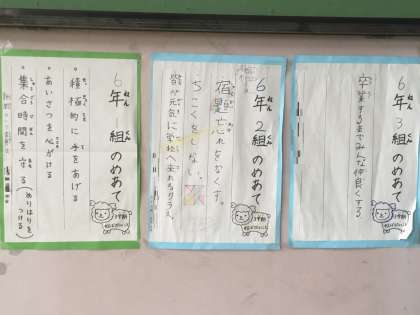 6年1組のめあて
・積極的に手をあげる
・あいさつを心がける
・集合時間を守る(めりはりをつける)
6年2組のめあて
宿題忘れをなくす。
ちこくをしない。
皆が元気に学校へ来れるクラス。
6年3組のめあて
卒業するまでみんな仲良くする